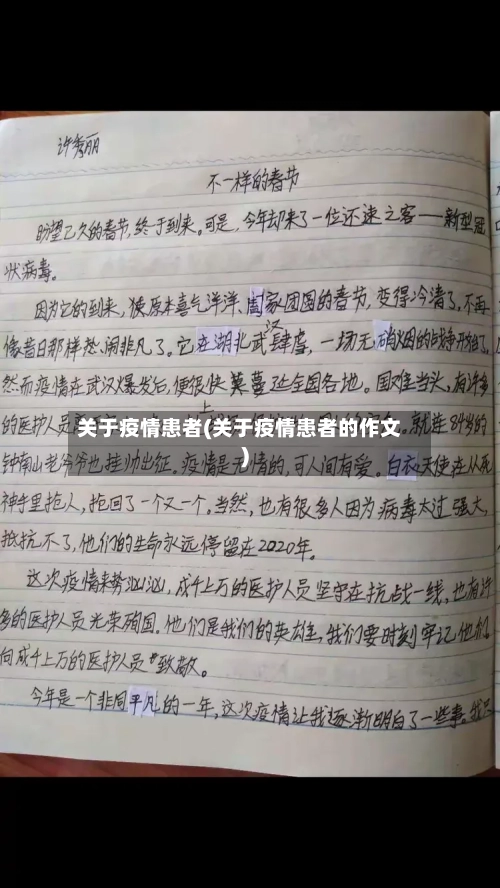 许秀丽
不一样的春节
盼望已久的春节,终于到来。可是,今年却来了一位还速之客——新型冠
状病毒。
因为它的到来,使原本喜气洋洋、阖家团圆的春节,变得冷清了,不再
像昔日那样热闹非凡了。它在湖北武汉肆虐,一场无硝烟的战争开始了。
然而疫情在武汉爆发后,便很快蔓延全国各地。国难当头,有许多
的医护人员
上
就连84岁的
关于疫情患者(关于疫情患者的作文
)
钟南山老爷爷也挂帅出征。疫情是无情的,可人间有爱。白衣天使在从死
神手里抢人,抢回了一个又一个。当然,也有很多人因为病毒太过强大,
抵抗不了,他们的生命永远停留在2020年。
这次疫情来势汹汹,成千上万的医护人员坚守在抗战一线,也有许
多的医护人员光荣殉国。他们是我们的英雄,我们要时刻牢记他们,
向成千上万的医护人员致敬。
今年是一个非同平凡的一年,这次疫情让我逐渐明白了一些事。我